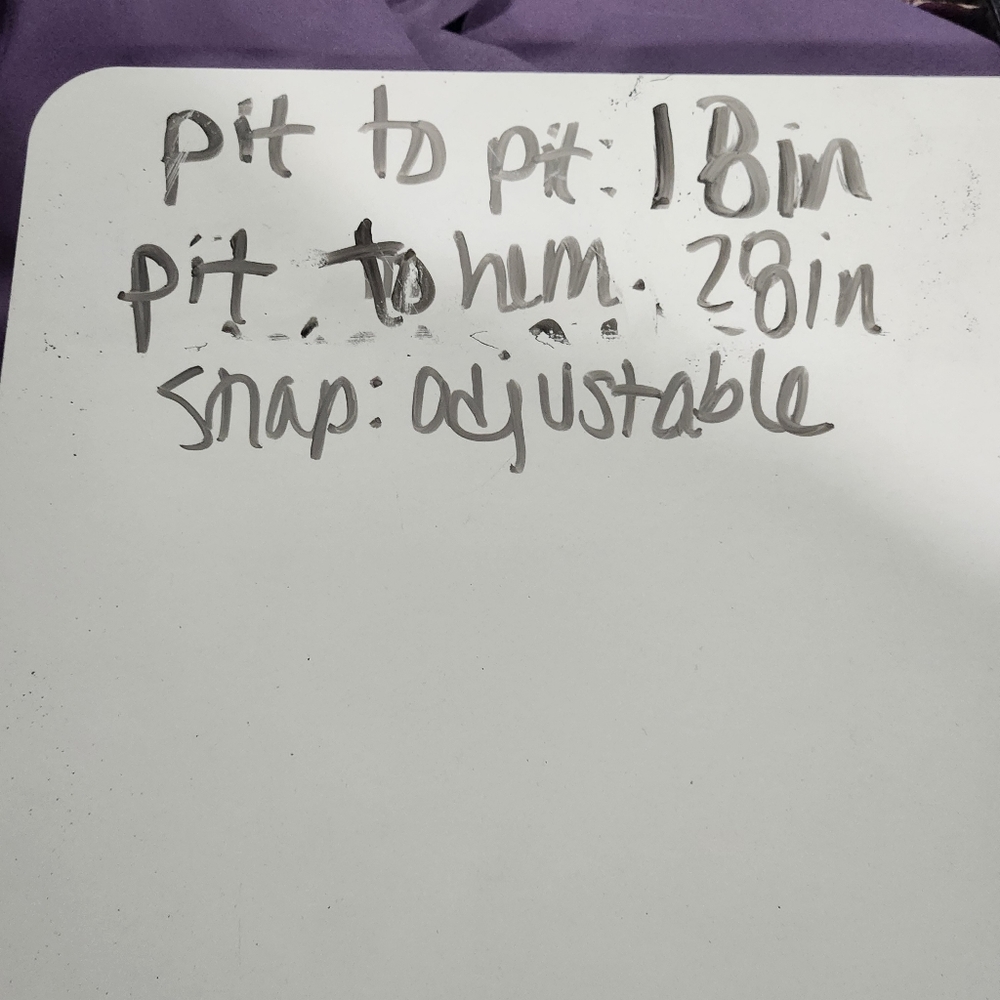 pit to pit: 18in
pit to hem. 28in
snap: adjustable